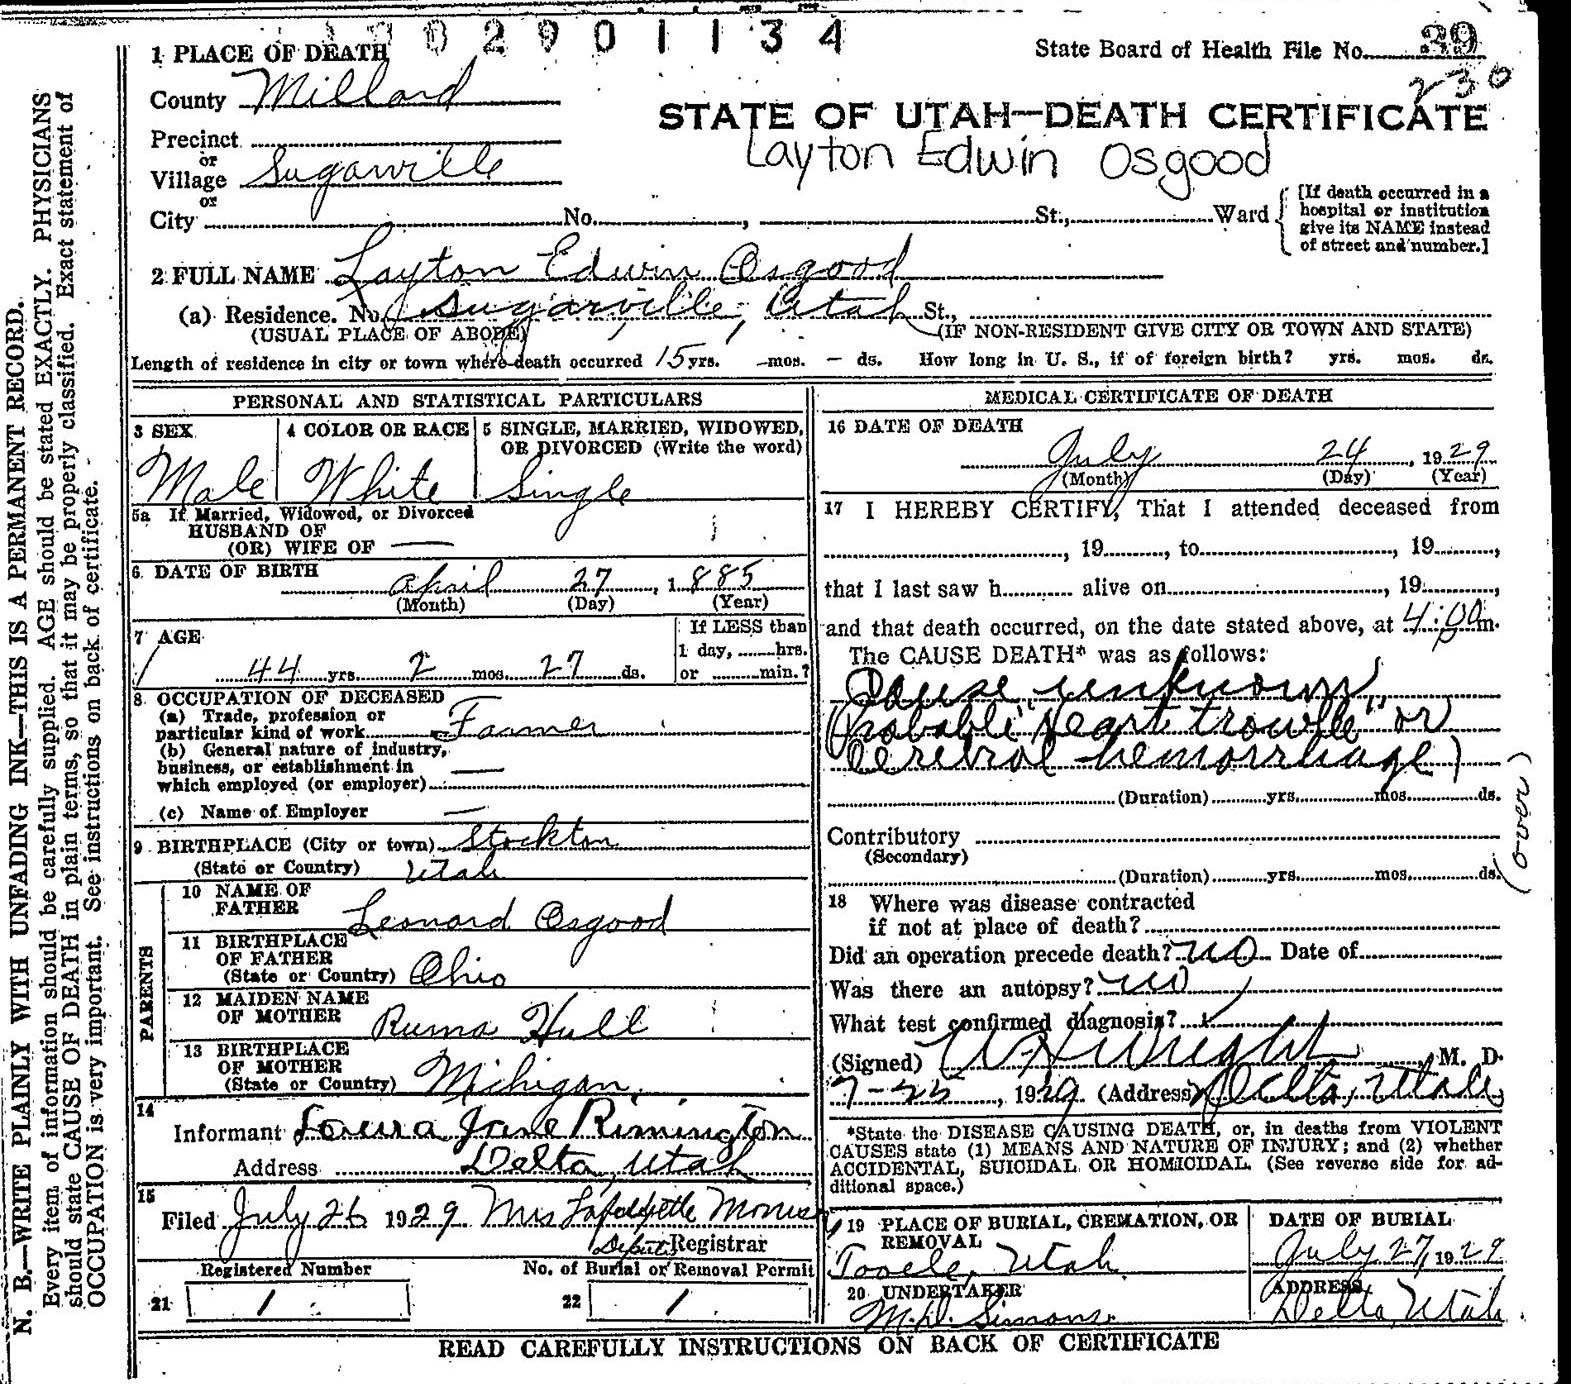 2 9 0 1 1 3 4
1 PLACE OF DEATH
State Board of Health File No. 39
230
County Millard
STATE OF UTAH—DEATH CERTIFICATE
Precinct
or
Layton Edwin Osgood
Village Sugarville
or
City No. , St., Ward
[If death occurred in a
hospital or institution
give its NAME instead
of street and number.]
2 FULL NAME Layton Edwin Osgood
(a) Residence. No. Sugarville, Utah St.,
(USUAL PLACE OF ABODE) (IF NON-RESIDENT GIVE CITY OR TOWN AND STATE)
Length of residence in city or town where death occurred 15 yrs. – mos. – ds. How long in U. S., if of foreign birth? yrs. mos. ds.
PERSONAL AND STATISTICAL PARTICULARS
3 SEX
Male
4 COLOR OR RACE
White
5 SINGLE, MARRIED, WIDOWED,
OR DIVORCED (Write the word)
Single
5a If Married, Widowed, or Divorced
HUSBAND OF
(OR) WIFE OF —
6 DATE OF BIRTH
April 27, 1885
(Month) (Day) (Year)
7 AGE
44 yrs. 2 mos. 27 ds.
If LESS than
1 day, hrs.
or min.?
8 OCCUPATION OF DECEASED
(a) Trade, profession or
particular kind of work Farmer
(b) General nature of industry,
business, or establishment in
which employed (or employer) —
(c) Name of Employer —
9 BIRTHPLACE (City or town) Stockton
(State or Country) Utah
PARENTS
10 NAME OF
FATHER Leonard Osgood
11 BIRTHPLACE
OF FATHER
(State or Country) Ohio
12 MAIDEN NAME
OF MOTHER Ruma Hull
13 BIRTHPLACE
OF MOTHER
(State or Country) Michigan
14
Informant Laura Jane Rimington
Address Delta, Utah
15
Filed July 26 1929 Mrs Lafayette Morris
Deputy Registrar
Registered Number No. of Burial or Removal Permit
21 1 22 1
MEDICAL CERTIFICATE OF DEATH
16 DATE OF DEATH
July 24, 1929
(Month) (Day) (Year)
17 I HEREBY CERTIFY, That I attended deceased from
, 19 , to , 19 ,
that I last saw h alive on , 19 ,
and that death occurred, on the date stated above, at 4:00 m.
The CAUSE DEATH* was as follows:
Cause unknown,
(Probable "heart trouble" or
Cerebral hemorrhage)
(Duration) yrs. mos. ds.
Contributory
(Secondary)
(Duration) yrs. mos. ds.
(over)
18 Where was disease contracted
if not at place of death?
Did an operation precede death? no Date of
Was there an autopsy? no
What test confirmed diagnosis?
(Signed) Wright, M. D.
7-25, 1929 (Address) Delta, Utah
*State the DISEASE CAUSING DEATH, or, in deaths from VIOLENT
CAUSES state (1) MEANS AND NATURE OF INJURY; and (2) whether
ACCIDENTAL, SUICIDAL OR HOMICIDAL. (See reverse side for ad-
ditional space.)
19 PLACE OF BURIAL, CREMATION, OR
REMOVAL
Tooele, Utah
DATE OF BURIAL
July 27, 1929
20 UNDERTAKER
M.D. Simons
ADDRESS
Delta, Utah
READ CAREFULLY INSTRUCTIONS ON BACK OF CERTIFICATE
N. B.—WRITE PLAINLY WITH UNFADING INK—THIS IS A PERMANENT RECORD.
Every item of information should be carefully supplied. AGE should be stated EXACTLY. PHYSICIANS
should state CAUSE OF DEATH in plain terms, so that it may be properly classified. Exact statement of
OCCUPATION is very important. See instructions on back of certificate.